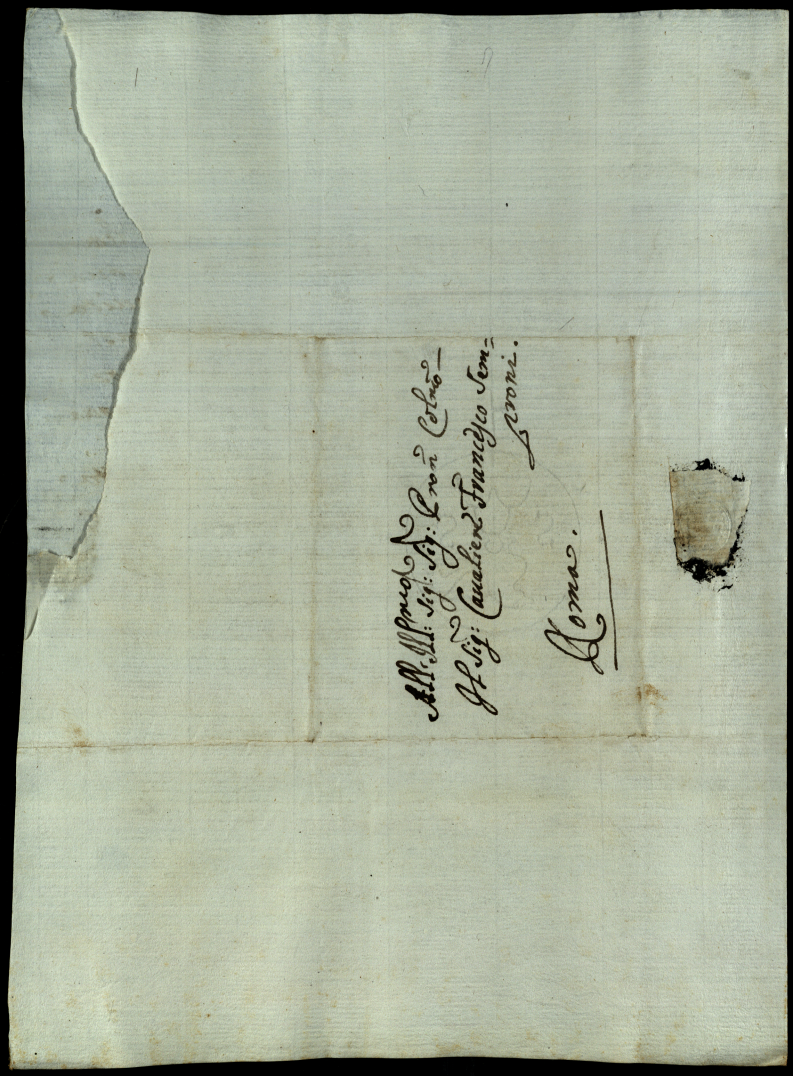 All' Ill:mo Sig: Sig: Pron̄ Colmō
Il Sig: Caualiere Francesco Sem=
proni.
Roma.